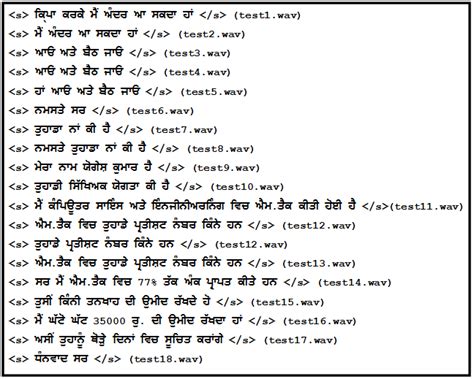 <s> ਕਿਪਾ ਕਰਕੇ ਮੈਂ ਅੰਦਰ ਆ ਸਕਦਾ ਹਾਂ </s> (test1.wav)
<s> ਮੈਂ ਅੰਦਰ ਆ ਸਕਦਾ ਹਾਂ </s> (test2.wav)
<s> ਆਓ ਅਤੇ ਬੈਠ ਜਾਓ </s> (test3.wav)
<s> ਆਓ ਅਤੇ ਬੈਠ ਜਾਓ </s> (test4.wav)
<s> ਹਾਂ ਆਓ ਅਤੇ ਬੈਠ ਜਾਓ </s> (test5.wav)
<s> ਨਮਸਤੇ ਸਰ </s> (test6.wav)
<s> ਤੁਹਾਡਾ ਨਾਂ ਕੀ ਹੈ </s> (test7.wav)
<s> ਨਮਸਤੇ ਤੁਹਾਡਾ ਨਾਂ ਕੀ ਹੈ </s> (test8.wav)
<s> ਮੇਰਾ ਨਾਮ ਯੋਗੇਸ਼ ਕੁਮਾਰ ਹੈ </s> (test9.wav)
<s> ਤੁਹਾਡੀ ਸਿੱਖਿਅਕ ਯੋਗਤਾ ਕੀ ਹੈ </s> (test10.wav)
<s> ਮੈਂ ਕੰਪਿਊਟਰ ਸਾਇੰਸ ਅਤੇ ਇੰਜੀਨੀਅਰਨਿੰਗ ਵਿਚ ਐਮ.ਟੈਕ ਕੀਤੀ ਹੋਈ ਹੈ </s>(test11.wav)
<s> ਐਮ.ਟੈਕ ਵਿਚ ਤੁਹਾਡੇ ਪ੍ਰਤੀਸ਼ਟ ਨੰਬਰ ਕਿੰਨੇ ਹਨ </s> (test12.wav)
<s> ਤੁਹਾਡੇ ਪ੍ਰਤੀਸ਼ਟ ਨੰਬਰ ਕਿੰਨੇ ਹਨ </s> (test12.wav)
<s> ਐਮ.ਟੈਕ ਵਿਚ ਤੁਹਾਡੇ ਪ੍ਰਤੀਸ਼ਟ ਨੰਬਰ ਕਿੰਨੇ ਹਨ </s> (test13.wav)
<s> ਸਰ ਮੈਂ ਐਮ.ਟੈਕ ਵਿਚ 77% ਤੱਕ ਅੰਕ ਪ੍ਰਾਪਤ ਕੀਤੇ ਹਨ </s> (test14.wav)
<s> ਤੁਸੀਂ ਕਿੰਨੀ ਤਨਖਾਹ ਦੀ ਉਮੀਦ ਰੱਖਦੇ ਹੋ </s> (test15.wav)
<s> ਮੈਂ ਘੱਟੋ ਘੱਟ 35000 ਰੁ. ਦੀ ਉਮੀਦ ਰੱਖਦਾ ਹਾਂ </s> (test16.wav)
<s> ਅਸੀਂ ਤੁਹਾਨੂੰ ਥੋੜ੍ਹੇ ਦਿਨਾਂ ਵਿਚ ਸੂਚਿਤ ਕਰਾਂਗੇ </s> (test17.wav)
<s> ਧੰਨਵਾਦ ਸਰ </s> (test18.wav)